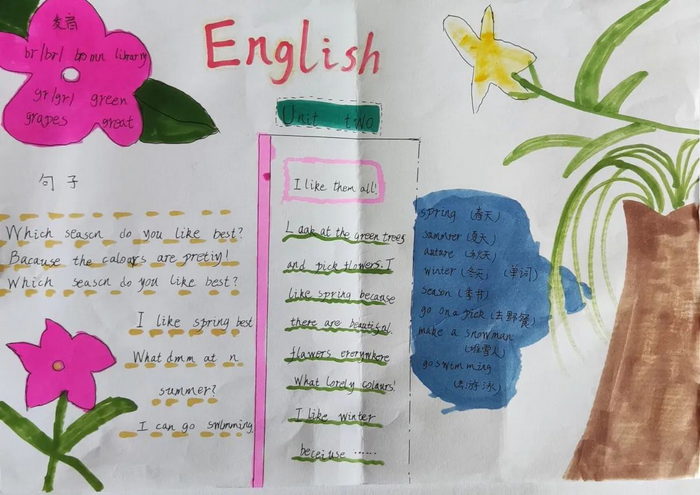 English
Unit two
麦商
br/br/ brown library
gr/gr/ green
grapes great
句子
Which season do you like best?
Bacause the calours are pretiy!
Which season do you like best?
I like spring best
What dmm at n
summer?
I can go swimming
I like them all!
Look at the green trees
and pick flowers. I
like spring because
there are beautiful
flawers ererywhere
What lorely colours!
I like winter
beceiuse ......
spring (春天)
sammer (夏天)
autare (秋天)
winter (冬天) (单词)
season (季节)
go on a pick (去野餐)
make a snowman
(堆雪人)
go swimming
(去游泳)